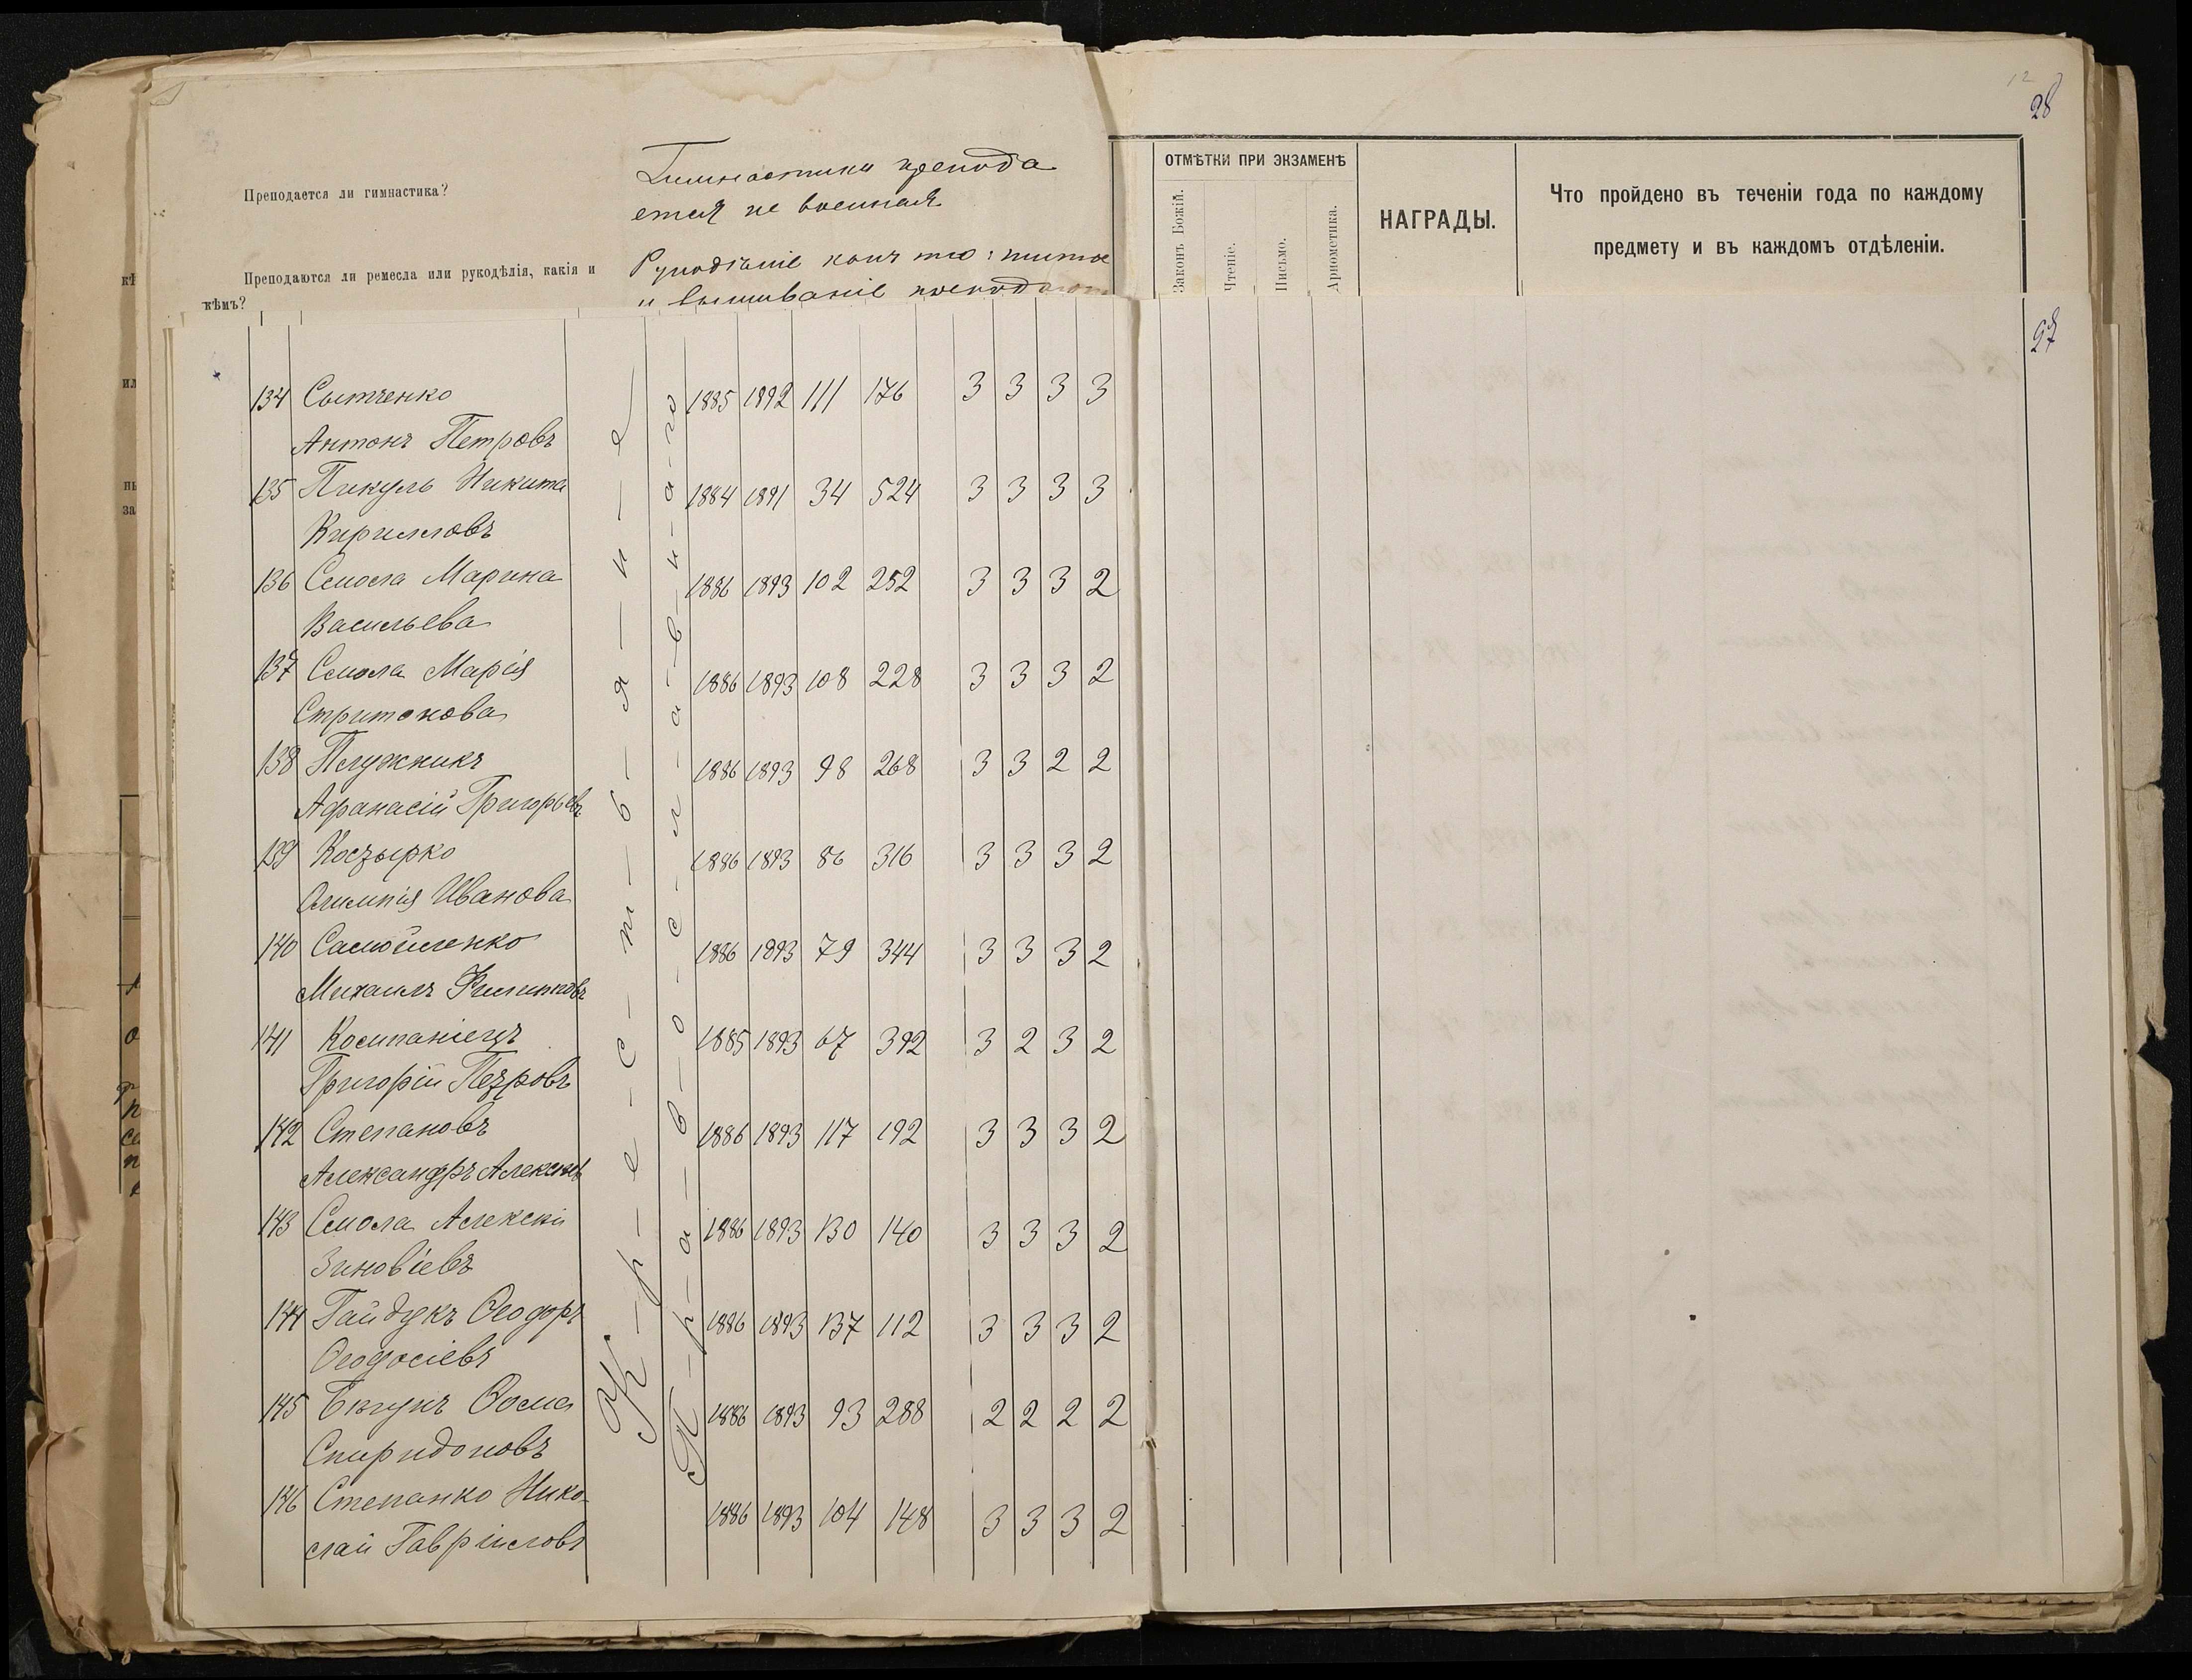 28
Преподается ли гимнастика?
Гимнастика препода
ется не военная
Преподаются ли ремесла или рукодѣлія, какія и
кѣмъ?
Рукодѣліе какъ то: шитье
и вышиваніе преподают
ОТМѢТКИ ПРИ ЭКЗАМЕНѢ
Законъ Божій.
Чтеніе.
Письмо.
Ариѳметика.
НАГРАДЫ.
Что пройдено въ теченіи года по каждому
предмету и въ каждомъ отдѣленіи.
27
К-р-е-с-т-ь-я-н-е
П-р-а-в-о-с-л-а-в-н-а-го
134 Сытченко 1885 1892 111 176 3 3 3 3
Антонъ Петровъ
135 Пикуль Никита 1884 1891 34 524 3 3 3 3
Кирилловъ
136 Смола Марина 1886 1893 102 252 3 3 3 2
Васильева
137 Смола Марія 1886 1893 108 228 3 3 3 2
138 Плужникъ 1886 1893 98 268 3 3 2 2
Афанасій Григорьевъ
139 Козырко 1886 1893 86 316 3 3 3 2
Олимпія Иванова
140 Самойленко 1886 1893 79 344 3 3 3 2
Михаилъ Филиповъ
141 Компаніецъ 1885 1893 67 392 3 2 3 2
Григорій Петровъ
142 Степановъ 1886 1893 117 192 3 3 3 2
Александръ Алексѣевъ
143 Смола Алексѣй 1886 1893 130 140 3 3 3 2
Зиновіевъ
144 Гайдукъ Ѳеодоръ 1886 1893 137 112 3 3 3 2
Ѳеодосіевъ
145 Бѣгунъ Ѳома 1886 1893 93 288 2 2 2 2
Спиридоновъ
146 Степанко Нико- 1886 1893 104 148 3 3 3 2
лай Гавріиловъ